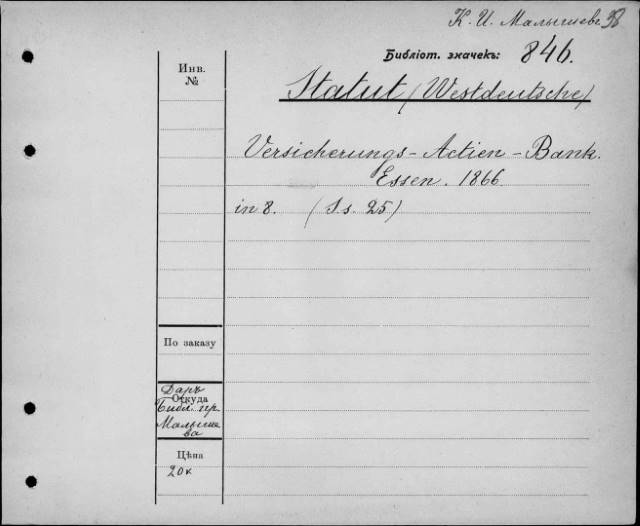 К. И. Малышевъ 38
Библіот. значекъ: 846.
Инв.
№
Statut (Westdeutsche)
Versicherungs-Actien-Bank.
Essen. 1866.
in 8. (S.s. 25)
По заказу
Даръ
Откуда
Библ. пр.
Малыше
ва
Цѣна
20 к